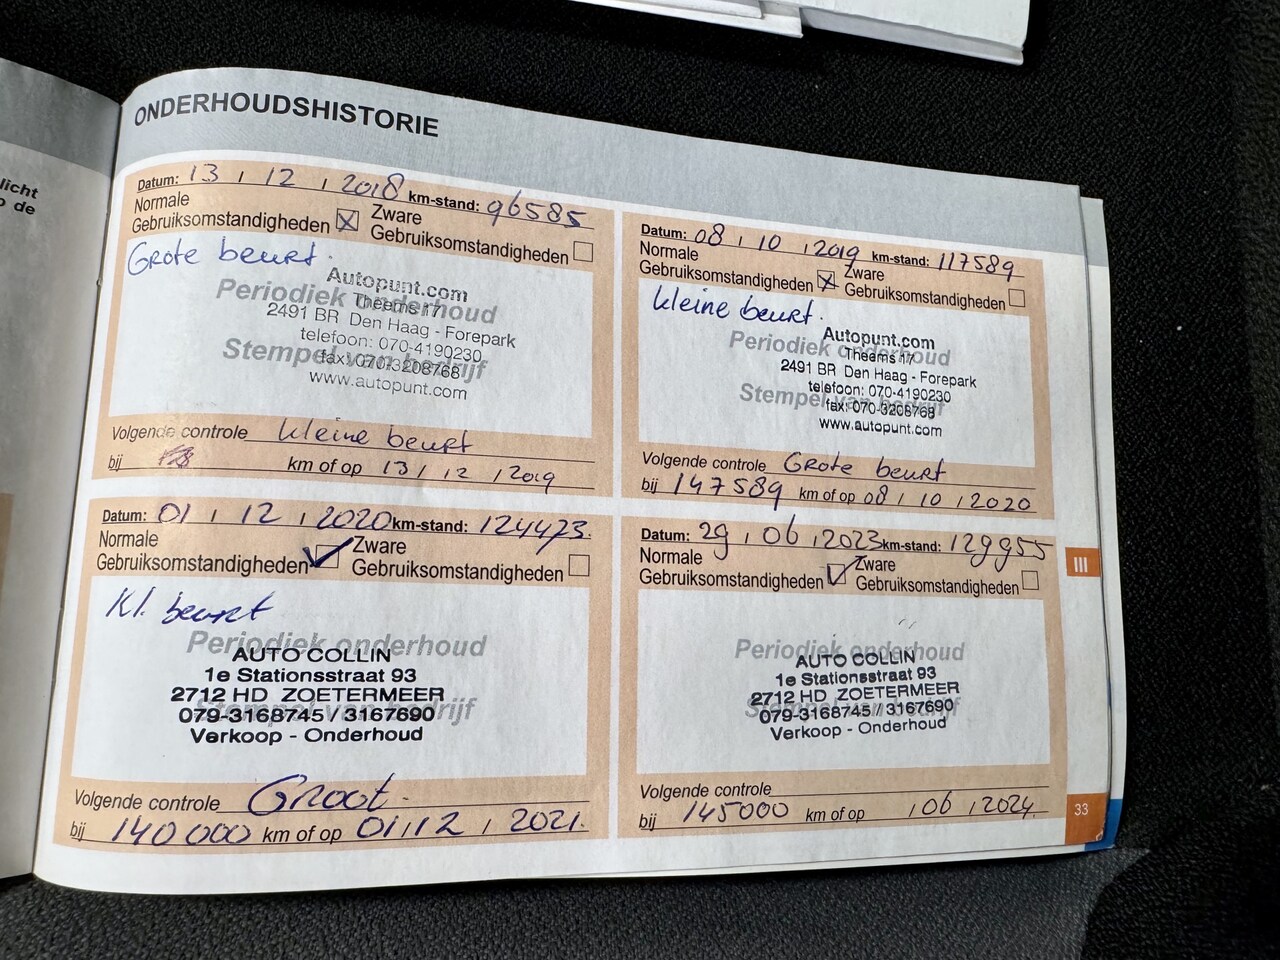 licht
o de
ONDERHOUDSHISTORIE
Datum: 13 / 12 / 2018 km-stand: 96585
Normale Gebruiksomstandigheden ☒ Zware Gebruiksomstandigheden ☐
Grote beurt.
Periodiek onderhoud
Stempel van bedrijf
Autopunt.com
Theems 17
2491 BR Den Haag - Forepark
telefoon: 070-4190230
fax: 070-3208768
www.autopunt.com
Volgende controle kleine beurt
bij km of op 13 / 12 / 2019
Datum: 08 / 10 / 2019 km-stand: 117589
Normale Gebruiksomstandigheden ☒ Zware Gebruiksomstandigheden ☐
kleine beurt.
Periodiek onderhoud
Stempel van bedrijf
Autopunt.com
Theems 17
2491 BR Den Haag - Forepark
telefoon: 070-4190230
fax: 070-3208768
www.autopunt.com
Volgende controle Grote beurt
bij 147589 km of op 08 / 10 / 2020
Datum: 01 / 12 / 2020 km-stand: 124473.
Normale Gebruiksomstandigheden ☑ Zware Gebruiksomstandigheden ☐
Kl. beurt
Periodiek onderhoud
Stempel van bedrijf
AUTO COLLIN
1e Stationsstraat 93
2712 HD ZOETERMEER
079-3168745 / 3167690
Verkoop - Onderhoud
Volgende controle Groot.
bij 140000 km of op 01 / 12 / 2021.
Datum: 29 / 06 / 2023 km-stand: 129955
Normale Gebruiksomstandigheden ☑ Zware Gebruiksomstandigheden ☐
Periodiek onderhoud
Stempel van bedrijf
AUTO COLLIN
1e Stationsstraat 93
2712 HD ZOETERMEER
079-3168745 / 3167690
Verkoop - Onderhoud
Volgende controle
bij 145000 km of op / 06 / 2024.
III
33